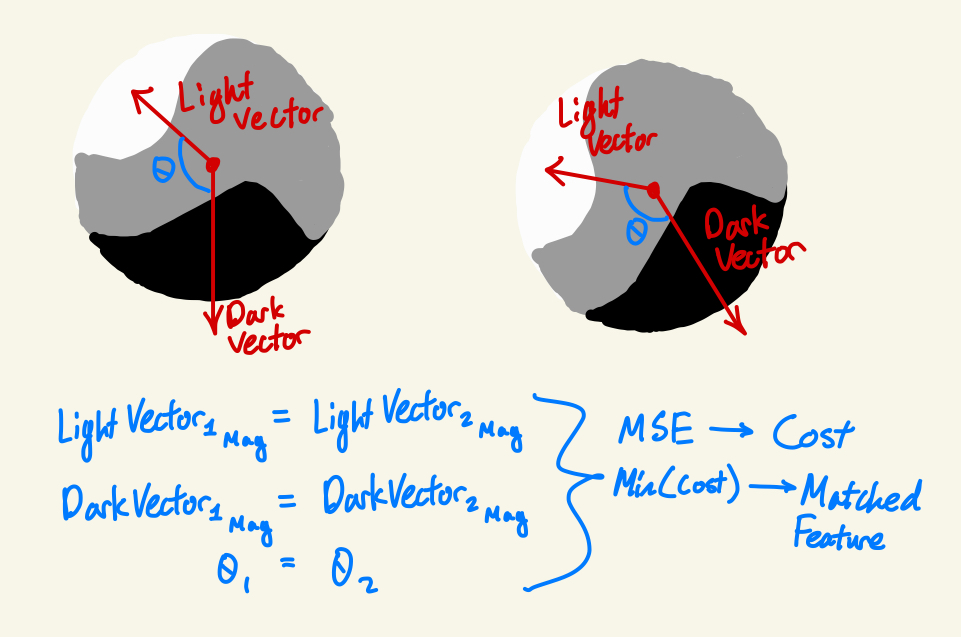 Light
Vector
θ
Dark
Vector
Light
Vector
θ
Dark
Vector
Light Vector₁ Mag = Light Vector₂ Mag
Dark Vector₁ Mag = Dark Vector₂ Mag
θ₁ = θ₂
MSE → Cost
Min(Cost) → Matched
Feature